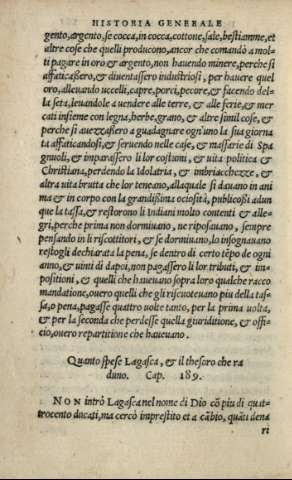 HISTORIA GENERALE
gento, argento, se cocca, in cocca, cottone, sale, bestiamme, et
altre cose che quelli producono, ancor che comandò a mol-
ti pagare in oro & argento, non hauendo minere, perche si
affaticaßero, & diuentassero industriosi, per hauere quel
oro, alleuando uccelli, capre, porci, pecore, & facendo del-
la seta, leuandole a uendere alle terre, & alle ferie, & mer
cati insieme con legna, herbe, grano, & altre simil cose, &
perche si auezzaßero a guadagnare ogn'uno la sua giorna
ta affaticandosi, & seruendo nelle case, & massarie di Spa
gnuoli, & imparassero li lor costumi, & uita politica &
Christiana, perdendo la Idolatria, & imbriacchezze, &
altra uita brutta che lor teneano, allaquale si dauano in ani
ma & in corpo con la grandißima ociosità, publicoßi adun
que la tassa, & restorono li Indiani molto contenti & alle-
gri, perche prima non dormiuano, ne riposauano, sempre
pensando in li riscottitori, & se dormiuano, lo insognauano
restogli dechiarata la pena, se dentro di certo tẽpo de ogni
anno, & uinti di dapoi, non pagassero li lor tributi, & im-
positioni, & quelli che haueuano sopra loro qualche racco
mandatione, ouero quelli che gli riscuoteuano piu della tas-
sa, o pena, pagasse quattro uolte tanto, per la prima uolta,
& per la seconda che perdesse quella giuriditione, & offi-
cio, ouero repartitione che haueuano.
Quanto spese Lagasca, & il thesoro che ra
duno. Cap. 189.
NON intrò Lagasca nel nome di Dio cõ piu di quat-
trocento ducati, ma cercò imprestito et a cãbio, quãti dena
ri